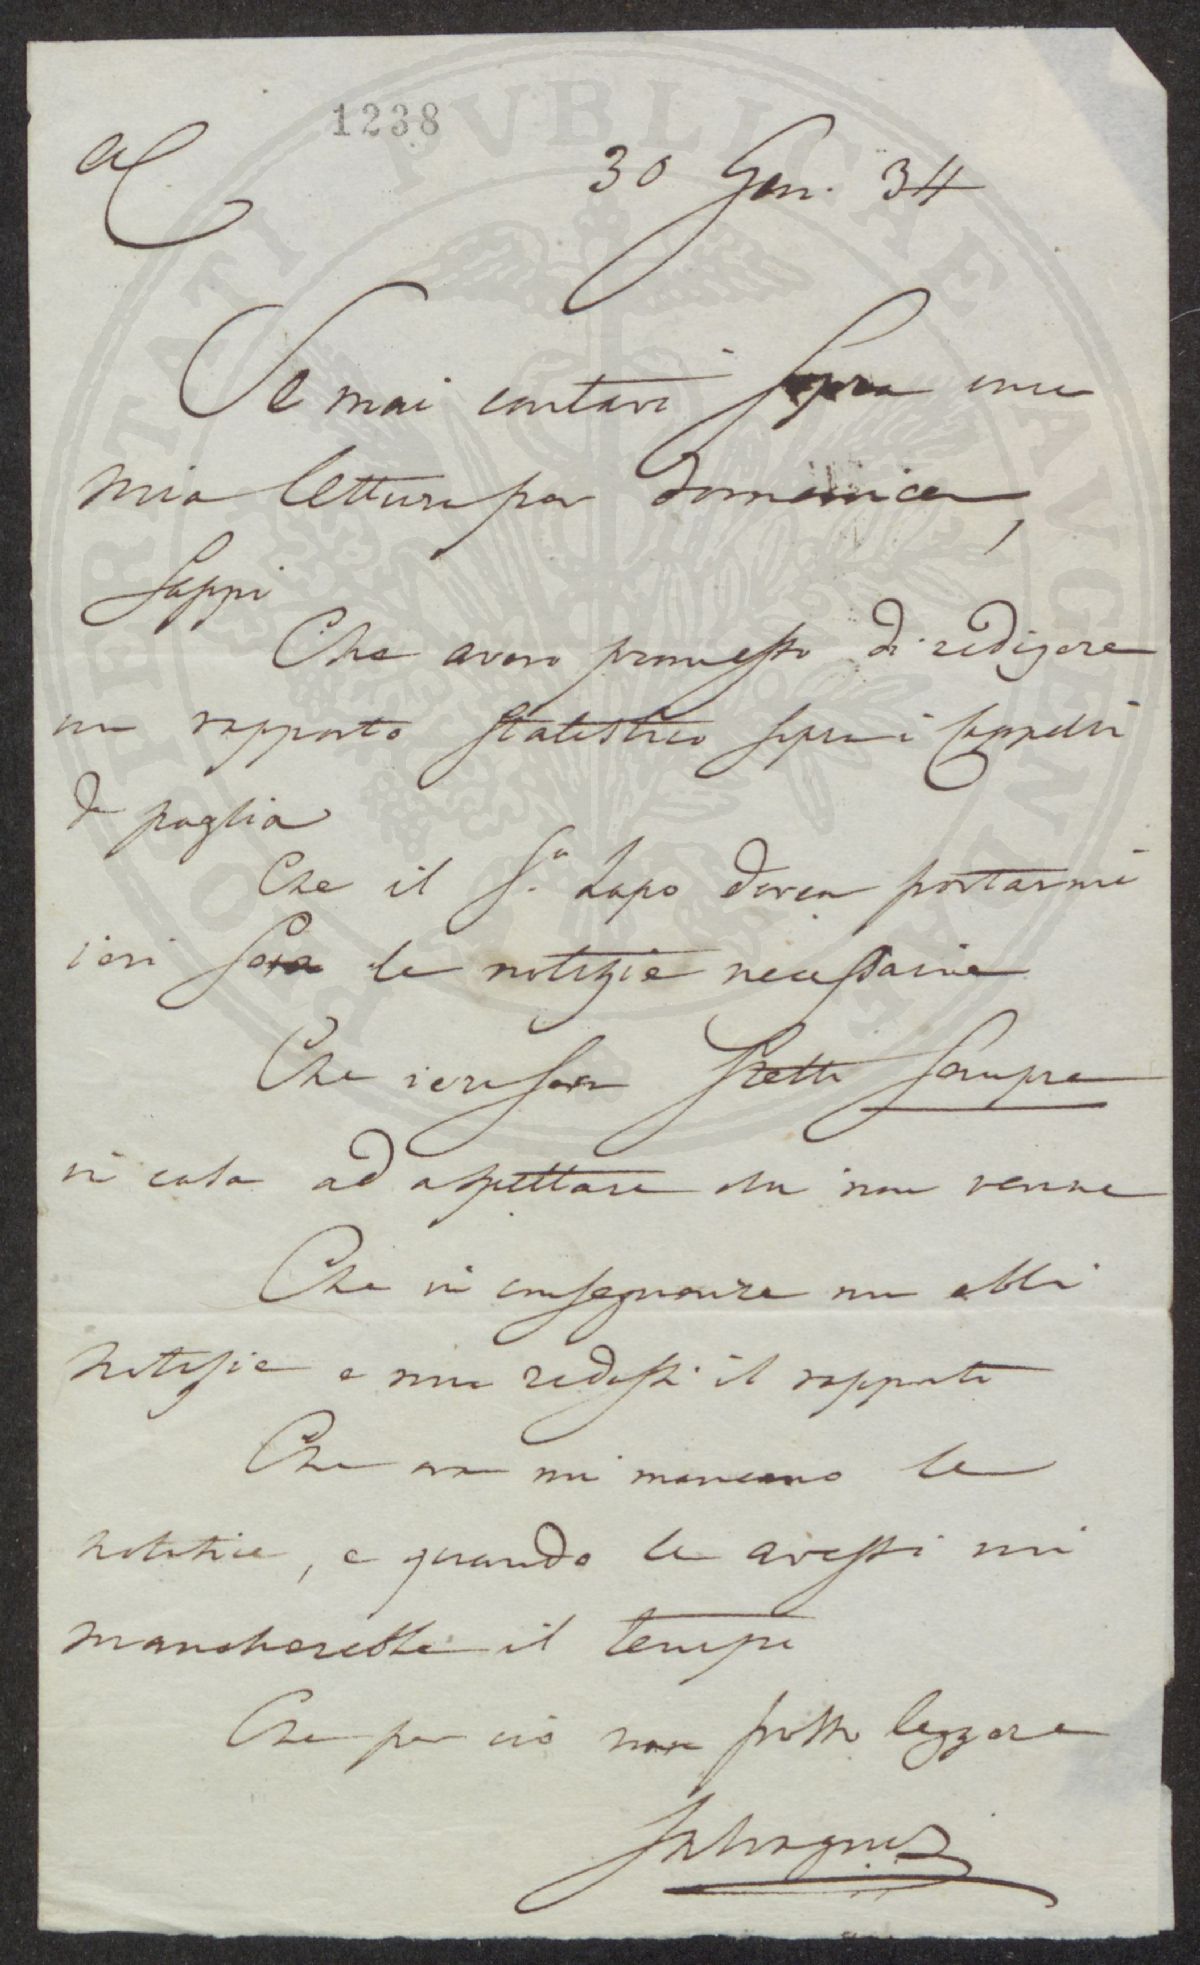 1238
AC
30 Gen. 34
Se mai contavi sopra una
mia lettura per domenica,
sappi
Che avevo promesso di redigere
un rapporto statistico sopra i Cappelli
di paglia
Che il Sr. Lapo dovea portarmi
ieri sera le notizie necessarie
Che ieri sera stetti sempre
in casa ad aspettare che non venne
Che in conseguenza non ebbi
notizie e non redassi il rapporto
Che ora mi mancano le
notizie, e quando le avessi mi
mancherebbe il tempo
Che per ciò non posso leggere
Salvagnoli
PVBLICAE